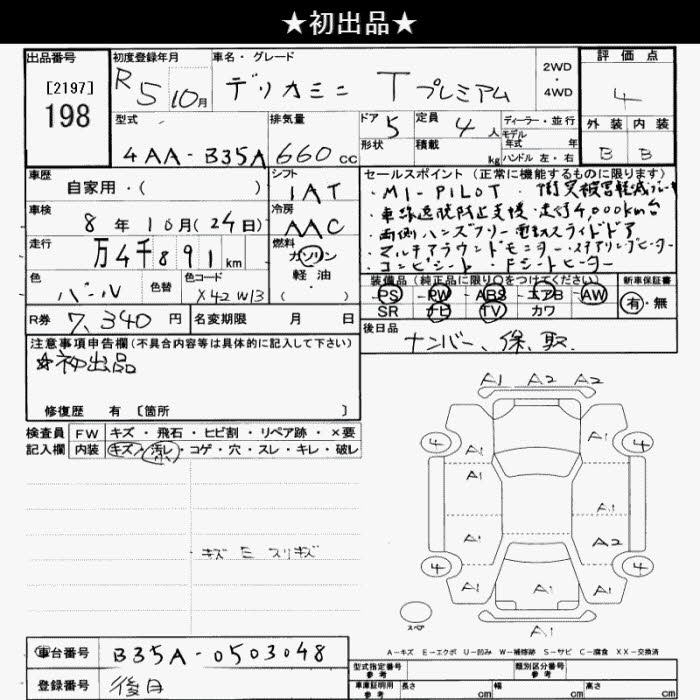 ★初出品★
出品番号
[2197]
198
初度登録年月
R5 10月
車名・グレード
デリカミニ T プレミアム
2WD
・
4WD
評価点
4
外装 内装
B B
型式
4AA-B35A
排気量
660 cc
ドア 5
形状
定員 4 人
積載 kg
ディーラー・並行
モデル
年式 年
ハンドル 左・右
車歴
自家用・( )
シフト
IAT
車検
8年10月(24日)
冷房
AAC
走行
万4千891km
燃料
ガソリン
軽油
・
色
パール
色替
色コード
X42 W13
R券 7,340 円
名変期限 月 日
セールスポイント(正常に機能するものに限ります)
・MI-PILOT ・衝突被害軽減ブレーキ
・車線逸脱防止支援・走行4,000km台
・両側ハンズフリー電動スライドドア
・マルチアラウンドモニター・ステアリングヒーター
・コンビシート・Fシートヒーター
装備品(純正品に限り○をつけてください)
PS PW ABS エアB AW
SR ナビ TV カワ
新車保証書
有・無
後日品
ナンバー、保、取
注意事項申告欄(不具合内容等は具体的に記入して下さい)
☆初出品
修復歴 有 〔箇所 〕
検査員 FW キズ・飛石・ヒビ割・リペア跡・×要
記入欄 内装 キズ・汚レ・コゲ・穴・スレ・キレ・破レ
キズ E スリキズ
A1 A2 A2
4 A1 A1 4
A1
A1
A1 A2
4 4
A1 A1 A1
スペア
A1
A-キズ E-エクボ U-凹み W-補修跡 S-サビ C-腐食 XX-交換済
車台番号 B35A-0503048
登録番号 後日
型式指定番号
参考
類別区分番号
参考
車庫証明用
参考
長さ cm 幅 cm 高さ cm